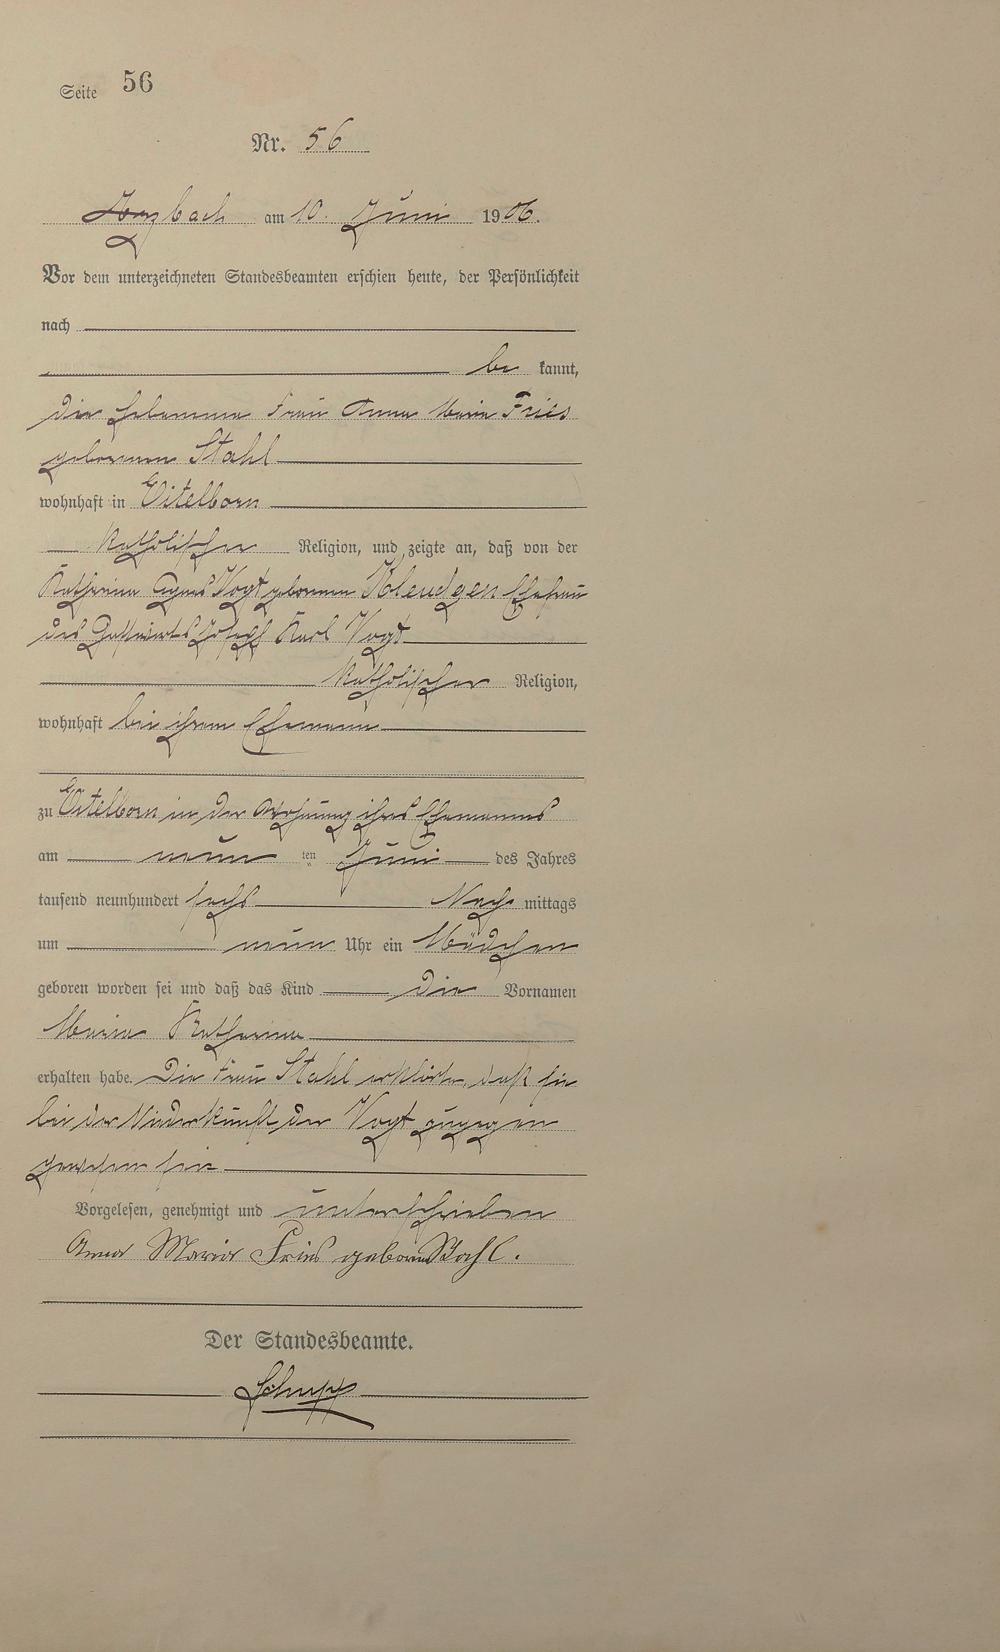 Seite 56
Nr. 56
Arzbach am 10. Juni 1906.
Vor dem unterzeichneten Standesbeamten erschien heute, der Persönlichkeit
nach
be kannt,
die Hebamme Frau Anna Maria Fries
geborenen Stahl
wohnhaft in Eitelborn
katholischer Religion, und zeigte an, daß von der
Katharina Agnes Vogt geborenen Kleudgen Ehefrau
des Gastwirts Josef Karl Vogt
katholischer Religion,
wohnhaft bei ihrem Ehemann
zu Eitelborn in der Wohnung ihres Ehemannes
am neun ten Juni des Jahres
tausend neunhundert sechs Nach mittags
um neun Uhr ein Mädchen
geboren worden sei und daß das Kind die Vornamen
Maria Katharina
erhalten habe. Die Frau Stahl erklärte, daß sie
bei der Niederkunft der Vogt zugegen
gewesen sei
Vorgelesen, genehmigt und unterschrieben
Anna Maria Fries geborne Stahl.
Der Standesbeamte.
Schupp